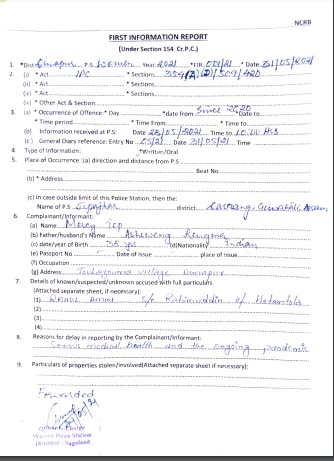 NCRB
FIRST INFORMATION REPORT
(Under Section 154 Cr.P.C.)
1. *Dist Dimapur P.S Women Year 2021 *FIR 001/21 * Date 31/05/2021
2. (i) * Act IPC * Sections 354(A)(D)/509/420
(ii) * Act * Sections
(iii) * Act * Sections
(iv) * Other Act & Section
3. (a) * Occurrence of Offence: * Day *date from Since 2020 to
* Time period * Time From * Time to
(b) Information received at P.S: Date 28/05/2021 Time to 10:00 Hrs
(c) General Diary reference: Entry No 05/21 Date 31/05/21 Time
4. Type of information: *Written/Oral
5. Place of Occurrence: (a) direction and distance from P.S
Beat No.
(b) * Address
(c) In case outside limit of this Police Station, then the:
Name of P.S Sipajhar district Darrang, Guwahati, Assam
6. Complainant/Informant:
(a) Name Mercy Tep
(b) Father/husband's Name Rengma
(c) date/Year of Birth 38 yrs (d)Nationality Indian
(e) Passport No Date of issue place of issue
(f) Occupation
(g) Address village Dimapur
7. Details of known/suspected/unknown accused with full particulars
(Attached separate sheet, if necessary):
(1) RAHUL AMIN S/o Rahimuddin of
(2)
(3)
(4)
8. Reasons for delay in reporting by the Complainant/Informant:
Serious medical health and the ongoing pandemic
9. Particulars of properties stolen/involved(Attached separate sheet if necessary):
Forwarded
Women Police Station
Dimapur, Nagaland